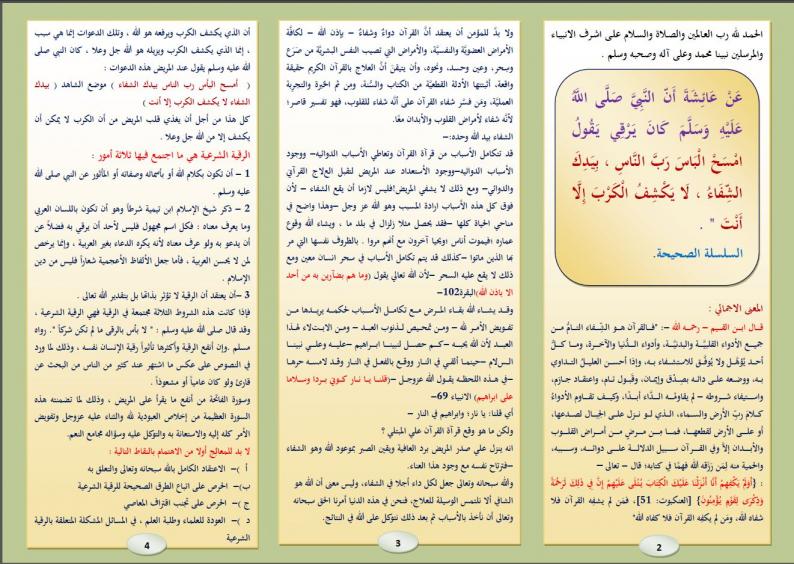 الحمد لله رب العالمين والصلاة والسلام على اشرف الانبياء
والمرسلين نبينا محمد وعلى آله وصحبه وسلم .
عَنْ عَائِشَةَ أَنّ النَّبِيَّ صَلَّى اللَّهُ
عَلَيْهِ وَسَلَّمَ كَانَ يَرْقِي يَقُولُ
امْسَحْ الْبَاسَ رَبَّ النَّاسِ ، بِيَدِكَ
الشِّفَاءُ ، لَا يَكْشِفُ الْكَرْبَ إِلَّا
أَنْتَ " .
السلسلة الصحيحة.
المعنى الاجمالي :
قال ابن القيم – رحمه الله – : "فالقرآن هو الشِّفاء التامُّ من
جميع الأدواء القلبيَّة والبدنيَّة، وأدواء الدُّنيا والآخرة، وما كلُّ
أحد يُؤهَّل ولا يُوفَّق للاستشفاء به، وإذا أحسن العليلُ التداوي
به، ووضعه على دائه بصِدْقٍ وإيمان، وقَبول تام، واعتقاد جازم،
واستيفاء شروطه – لم يقاومْه الدَّاء أبدًا، وكيف تقاوم الأدواءُ
كلامَ ربِّ الأرض والسماء، الذي لو نزل على الجبال لصدعها،
أو على الأرض لقطعها، فما من مرضٍ من أمراض القلوب
والأبدان إلاَّ وفي القرآن سبيل الدلالة على دوائه، وسببه،
والحمية منه لِمَن رَزقَه الله فهمًا في كتابه؛ قال – تعالى –
: {أَوَلَمْ يَكْفِهِمْ أَنَّا أَنْزَلْنَا عَلَيْكَ الْكِتَابَ يُتْلَى عَلَيْهِمْ إِنَّ فِي ذَلِكَ لَرَحْمَةً
وَذِكْرَى لِقَوْمٍ يُؤْمِنُونَ} [العنكبوت: 51]، فمَن لم يشفِه القرآن فلا
شفاه الله، ومَن لم يكفِه القرآن فلا كفاه الله"
2
ولا بدَّ للمؤمن أن يعتقد أنَّ القرآن دواءٌ وشفاءٌ – بإذن الله – لكافَّة
الأمراض العضويَّة والنفسيَّة، والأمراض التي تصيب النفس البشريَّة من صَرَع
وسحر، وعين وحسد، ونحوه، وأن يتيقَّنَ أنَّ العلاج بالقرآن الكريم حقيقة
واقعة، أثبتتها الأدلة القطعيَّة من الكتاب والسُّنة، ومن ثم الخبرة والتجربة
العمليَّة، ومَن فسَّر شفاء القرآن على أنَّه شفاء للقلوب، فهو تفسير قاصر؛
لأنَّه شفاء لأمراض القلوب والأبدان معًا.
الشفاء بيد الله وحده:–
قد تتكامل الأسباب من قرآة القرآن وتعاطي الأسباب الدوائيه– ووجود
الأسباب الدوائيه–ووجود الأستعداد عند المريض لتقبل العلاج القرآني
والدوائي– ومع ذلك لا يشفي المريض!فليس لازما أن يقع الشفاء – لأن
فوق كل هذه الأسباب ارادة المسبب وهو الله عز وجل –وهذا واضح في
مناحي الحياة كلها –فقد يحصل مثلا زلزال في بلد ما ، ويشاء الله وقوع
عماره !فيموت أناس !ويحيا آخرون مع أنهم مروا . بالظروف نفسها التي مر
بها الذين ماتوا –كذلك قد يتم تكامل الأسباب في سحر انسان معين ومع
ذلك لا يقع عليه السحر –لأن الله تعالى يقول (وما هم بضآرين به من أحد
الا باذن الله)البقرة102–
وقد يشاء الله بقاء المرض مع تكامل الأسباب لحكمه يريدها من
تفويض الأمر لله – ومن تمحيص لذنوب العبد – ومن الابتلاء لهذا
العبد لأن الله يحبه –كم حصل لنبينا ابراهيم –عليه وعلى نبينا
السلام –حينما ألقي في النار ووقع بالفعل في النار وقد لامسه حرها
–في هذه اللحظه يقول الله عزوجل –(قلنا يا نار كوني بردا وسلاما
على ابراهيم) الانبياء 69–
أي قلنا: يا نار؛ وابراهيم في النار –
ولكن ما هو وقع قرآة القرآن علي المبتلي ؟
انه ينزل علي صدر المريض برد العافية ويقين الصبر بموعود الله وهو الشفاء
–فترتاح نفسه مع وجود هذا العناء.
والله سبحانه وتعالى جعل لكل داء أجلا في الشفاء، وليس معنى أن الله هو
الشافي ألا نلتمس الوسيلة للعلاج، فنحن في هذه الدنيا أمرنا الحق سبحانه
وتعالى أن نأخذ بالأسباب ثم بعد ذلك نتوكل على الله في النتائج.
3
أن الذي يكشف الكرب ويرفعه هو الله ، وتلك الدعوات إنما هي سبب
، إنما الذي يكشف الكرب ويزيله هو الله جل وعلا ، كان النبي صلى
الله عليه وسلم يقول عند المريض هذه الدعوات :
( أمسح البأس رب الناس بيدك الشفاء ) موضع الشاهد ( بيدك
الشفاء لا يكشف الكرب إلا أنت )
كل هذا من أجل أن يغذي قلب المريض من أن الكرب لا يمكن أن
يكشف إلا من الله جل وعلا .
الرقية الشرعية هي ما اجتمع فيها ثلاثة أمور :
1 – أن تكون بكلام الله أو بأسمائه وصفاته أو المأثور عن النبي صلى الله
عليه وسلم .
2 – ذكر شيخ الإسلام ابن تيمية شرطاً وهو أن تكون باللسان العربي
وما يعرف معناه : فكل اسم مجهول فليس لأحد أن يرقي به فضلاً عن
أن يدعو به ولو عرف معناه لأنه يكره الدعاء بغير العربية ، وإنما يرخص
لمن لا يحسن العربية ، فأما جعل الألفاظ الأعجمية شعاراً فليس من دين
الإسلام .
3 –أن يعتقد أن الرقية لا تؤثر بذاتها بل بتقدير الله تعالى .
فإذا كانت هذه الشروط الثلاثة مجتمعة في الرقية فهي الرقية الشرعية ،
وقد قال صلى الله عليه وسلم : " لا بأس بالرقى ما لم تكن شركاً ". رواه
مسلم .وإن أنفع الرقية وأكثرها تأثيراً رقية الإنسان نفسه ، وذلك لما ورد
في النصوص على عكس ما اشتهر عند كثير من الناس من البحث عن
قارئ ولو كان عامياً أو مشعوذاً .
وسورة الفاتحة من أنفع ما يقرأ على المريض ، وذلك لما تضمنته هذه
السورة العظيمة من إخلاص العبودية لله والثناء عليه عزوجل وتفويض
الأمر كله إليه والاستعانة به والتوكل عليه وسؤاله مجامع النعم.
لا بد للمعالج أولا من الاهتمام بالنقاط التالية :
أ )– الاعتقاد الكامل بالله سبحانه وتعالى والتعلق به
ب )– الحرص على اتباع الطرق الصحيحة للرقية الشرعية
ج )– الحرص على تجنب اقتراف المعاصي
د )– العودة للعلماء وطلبة العلم ، في المسائل المشكلة المتعلقة بالرقية
الشرعية
4